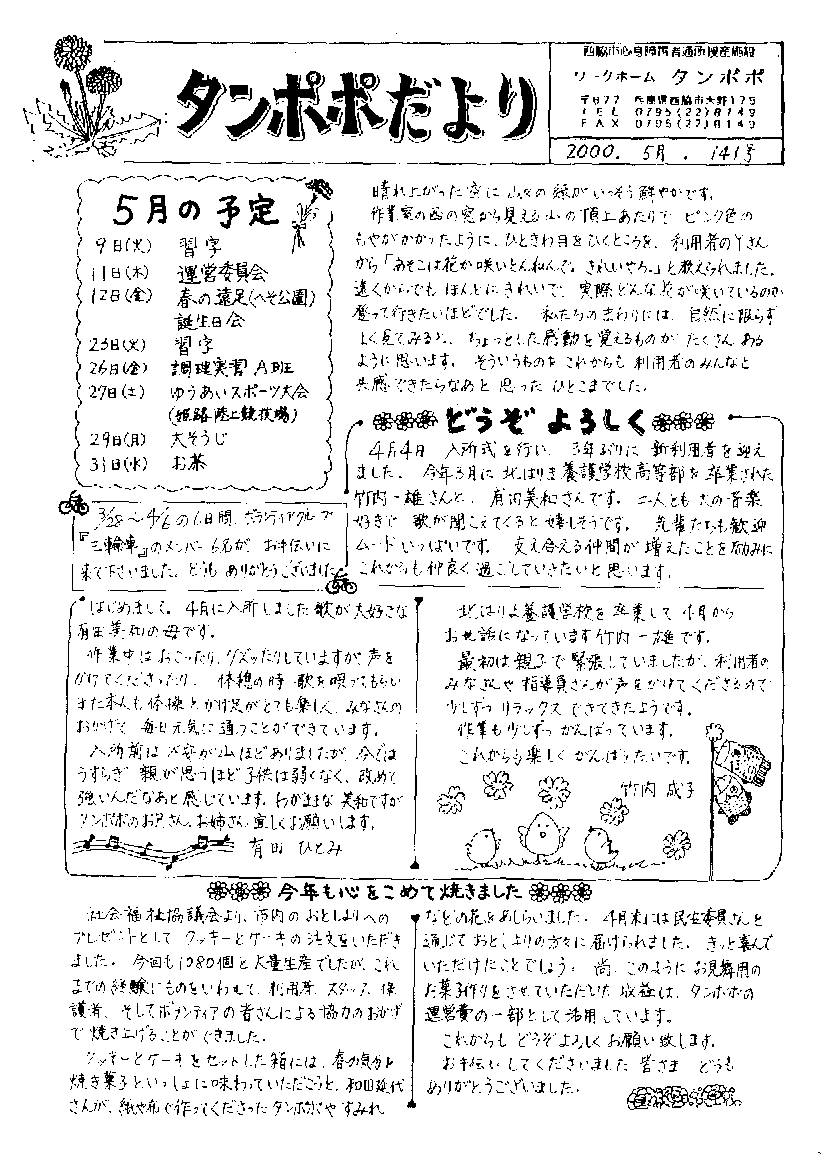 タンポポだより
西脇市心身障害者通所授産施設
ワークホーム タンポポ
〒677 兵庫県西脇市大野175
TEL 0795(22)8749
FAX 0795(22)8149
2000. 5月. 141号
5月の予定
9日(火) 習字
11日(木) 運営委員会
12日(金) 春の遠足(へそ公園)
誕生日会
23日(火) 習字
26日(金) 調理実習 AB班
27日(土) ゆうあいスポーツ大会
(姫路陸上競技場)
29日(月) 大そうじ
31日(水) お茶
晴れ上がった空に山々の緑がいっそう鮮やかです。
作業室の西の窓から見える山の頂上あたりで ピンク色の
もやがかかったように、ひときわ目をひくところを、利用者のYさん
から「あそこは花が咲いとんねんで。きれいやろ。」と教えられました。
遠くからでも ほんとにきれいで、実際どんな花が咲いているのか
登って行きたいほどでした。 私たちのまわりには、自然に限らず
よく見てみると、ちょっとした感動を覚えるものが たくさん ある
ように思います。 そういうものを これからも 利用者のみんなと
共感できたらなあと 思った ひとこまでした。
どうぞ よろしく
4月4日 入所式を行い、3年ぶりに 新利用者を迎え
ました。 今年3月に 北はりま養護学校高等部を卒業された
竹内一雄さんと、有田美和さんです。 二人とも 大の音楽
好きで 歌が聞こえてくると 嬉しそうです。 先輩たちも歓迎
ムードいっぱいです。 支え合える仲間が 増えたことを励みに
これからも仲良く過ごしていきたいと思います。
3/28〜4/6の6日間、ボランティアグループ
『三輪車』のメンバー6名が、お手伝いに
来て下さいました。どうも ありがとうございました。
はじめまして。4月に入所しました歌が大好きな
有田美和の母です。
作業中は おこったり、グズったりしていますが、声を
かけてくださったり、 休憩の時、歌を唄ってもらい
また本人も 体操とかけ足がとても楽しく、みなさんの
おかげで 毎日元気に通うことができています。
入所前は 不安が山ほどありましたが、今では
うすらぎ 親が思うほど子供は弱くなく、改めて
強いんだなあと感じています。わがままな 美和ですが
タンポポのお兄さん、お姉さん、宜しくお願いします。
有田 ひとみ
北はりま養護学校を卒業して 4月から
お世話になっています竹内一雄です。
最初は親子で緊張していましたが、利用者の
みなさんや指導員さんが声をかけてくださるので
少しずつ リラックス できてきたようです。
作業も少しずつ がんばっています。
これからも楽しく がんばりたいです。
竹内 成子
今年も心をこめて焼きました
社会福祉協議会より、市内のおとしよりへの
プレゼントとして クッキーとケーキの注文をいただき
ました。今回も1080個と大量生産でしたが、これ
までの経験にものをいわせて、利用者、スタッフ、保
護者、そしてボランティアの皆さんによる協力のおかげ
で焼き上げることができました。
クッキーとケーキをセットした箱には、春の気分も
焼き菓子といっしょに味わっていただこうと、和田延代
さんが、紙や布で作ってくださったタンポポや すみれ
などの花をあしらいました。4月末には民生委員さんを
通じて おとしよりの方々に届けられました。きっと喜んで
いただけたことでしょう。 尚、このように お見舞用の
お菓子作りをさせていただいた 収益は、タンポポの
運営費の一部として活用しています。
これからも どうぞよろしくお願い致します。
お手伝いしてくださいました 皆さま どうも
ありがとうございました。